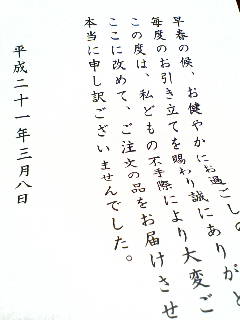 早春の候、お健やかにお過ごしの
毎度のお引き立てを賜わり誠にありがと
この度は、私どもの不手際により大変ご
ここに改めて、ご注文の品をお届けさせ
本当に申し訳ございませんでした。
平成二十一年三月八日